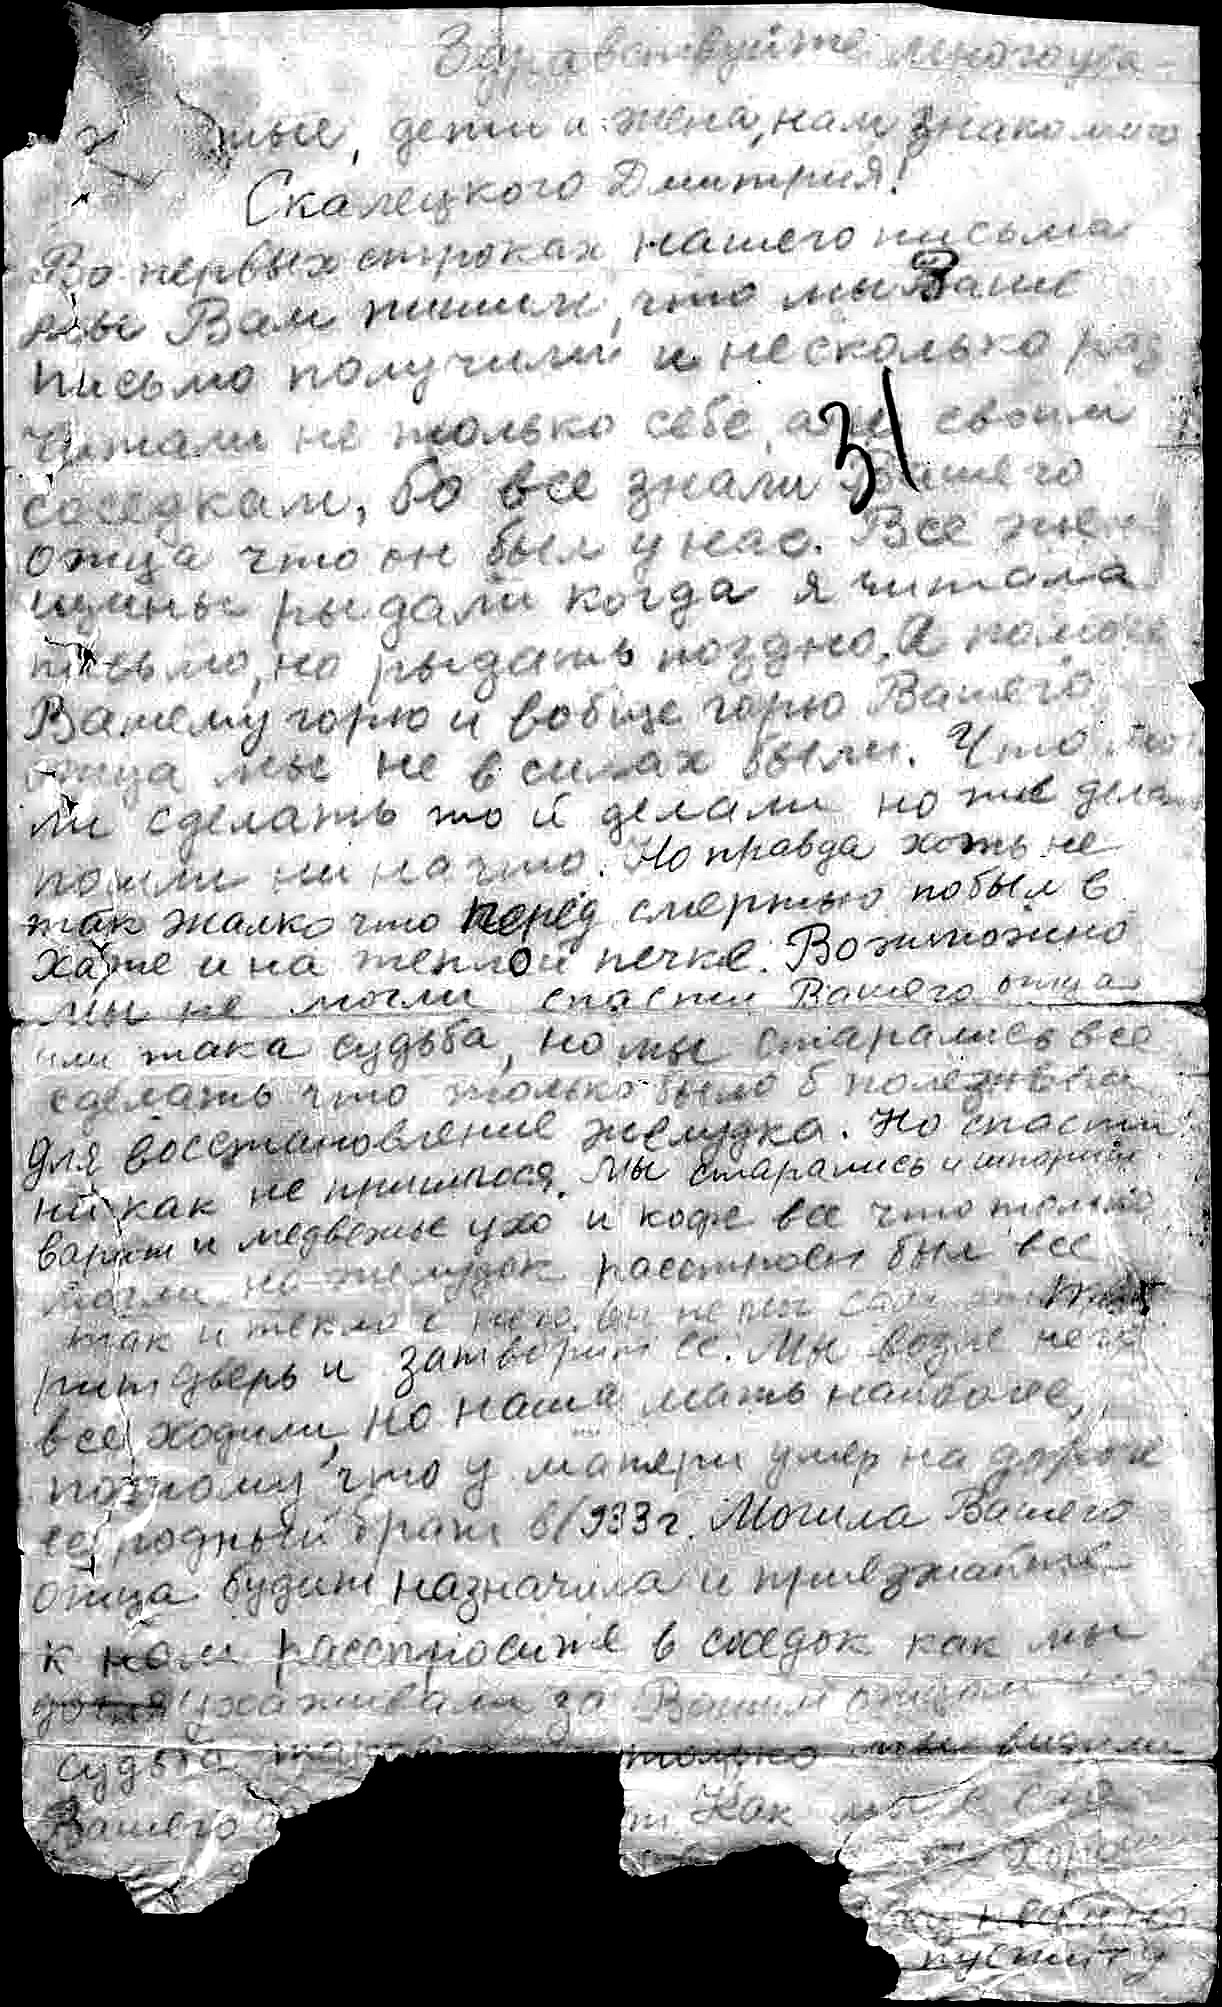 Здравствуйте многоува-
ж мые, дети и жена, нам знакомого
Скалецкого Дмитрия!
Во первых строках нашего письма
мы Вам пишем, что мы Ваше
письмо получили и несколько раз
читали не только себе, а и своим
31
соседкам, бо все знали Вашего
отца что он был у нас. Все жен-
щины рыдали когда я читала
письмо, но рыдать поздно. А помочь
Вашему горю и вобще горю Вашего
отца мы не в силах были. Что мог
ли сделать то й делали но те дела
пошли ни на что. Но правда хоть не
так жалко что перед смертью побыл в
хате и на теплой печке. Возможно
мы не могли спасти Вашего отца
или така судьба, но мы старались все
сделать что только было б полезным
для восстановление желудка. Но спасти
ни как не пришлося. Мы старались и
варит и медвежье ухо и кофе все что только
могли но желудок расстроен был все
так и текло с него, он не мог сам
рит дверь и затворит ее. Мы возле него
все ходили, но наша мать наиболее,
потому что у матери умер на дороге
её родный брат в 1933 г. Могила Вашего
отца будит назначила и приезжайте
к нам расспросите в соседок как мы
ухаживали за Вашим отцом
судьба только мы видили
Вашего т. Как мы с
хорош
пуститу